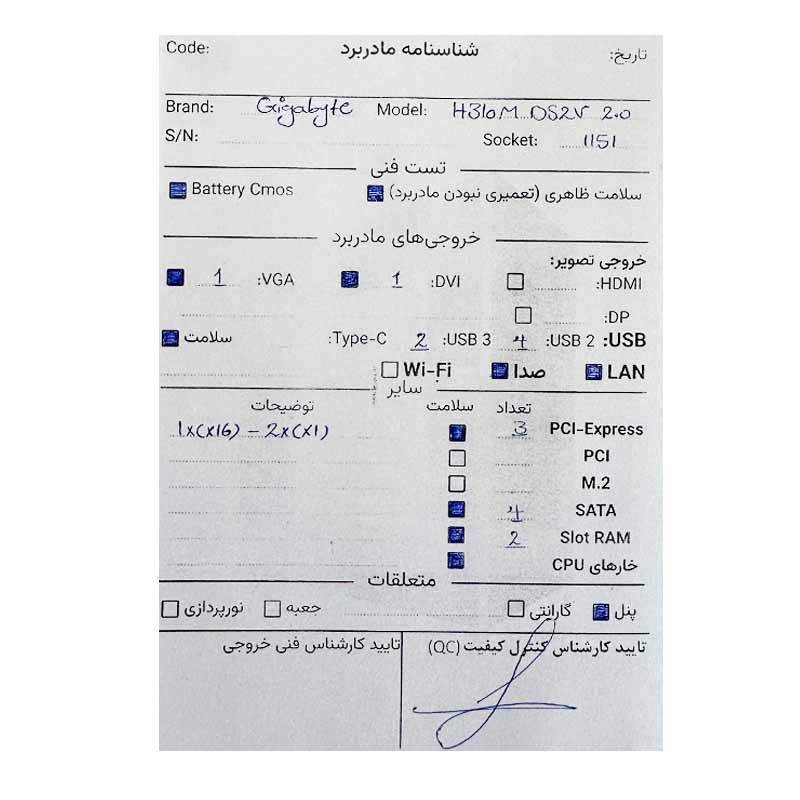 Code: شناسنامه مادربرد تاریخ:
Brand: Gigabyte Model: H310M DS2V 2.0
S/N: Socket: 1151
تست فنی
سلامت ظاهری (تعمیری نبودن مادربرد) Battery Cmos
خروجی‌های مادربرد
خروجی تصویر:
HDMI: DVI: 1 VGA: 1
DP:
USB: USB 2: 4 USB 3: 2 Type-C: سلامت
LAN صدا Wi-Fi
سایر
تعداد سلامت توضیحات
PCI-Express 3 1x(x16) - 2x(x1)
PCI
M.2
SATA 4
Slot RAM 2
خارهای CPU
متعلقات
پنل گارانتی جعبه نورپردازی
تایید کارشناس کنترل کیفیت (QC) تایید کارشناس فنی خروجی